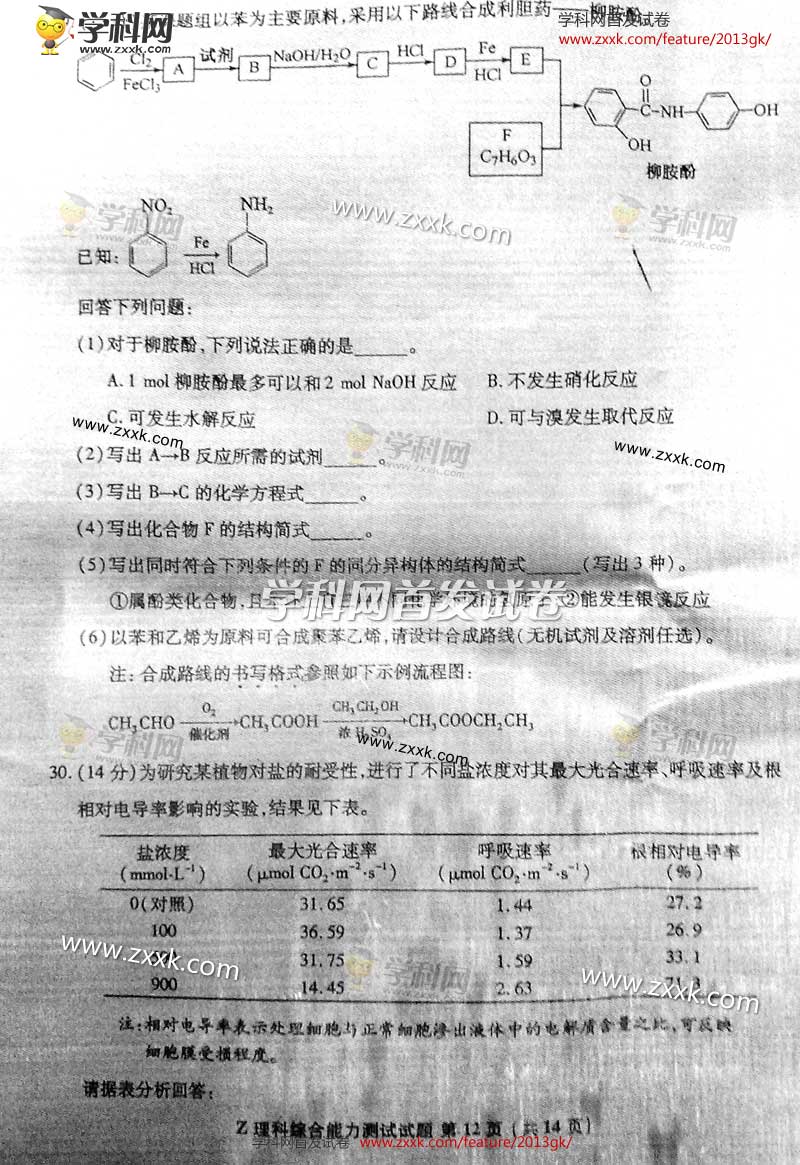 题组以苯为主要原料,采用以下路线合成利胆药——柳胺酚
学科网首发试卷
www.zxxk.com/feature/2013gk/
学科网
www.zxxk.com
Cl2
FeCl3
A
试剂
B
NaOH/H2O
C
HCl
D
Fe
HCl
E
F
C7H6O3
O
C—NH
OH
OH
柳胺酚
学科网
www.zxxk.com
www.zxxk.com
学科网
www.zxxk.com
已知:
NO2
Fe
HCl
NH2
回答下列问题:
(1)对于柳胺酚,下列说法正确的是______。
A. 1 mol 柳胺酚最多可以和 2 mol NaOH 反应
B. 不发生硝化反应
C. 可发生水解反应
D. 可与溴发生取代反应
www.zxxk.com
学科网
www.zxxk.com
(2)写出 A→B 反应所需的试剂______。
(3)写出 B→C 的化学方程式______。
(4)写出化合物 F 的结构简式______。
(5)写出同时符合下列条件的 F 的同分异构体的结构简式______(写出 3 种)。
学科网首发试卷
①属酚类化合物,且
②能发生银镜反应
(6)以苯和乙烯为原料可合成聚苯乙烯,请设计合成路线(无机试剂及溶剂任选)。
注:合成路线的书写格式参照如下示例流程图:
CH3CHO
O2
催化剂
CH3COOH
CH3CH2OH
浓H2SO4
CH3COOCH2CH3
学科网
www.zxxk.com
www.zxxk.com
学科网
www.zxxk.com
30. (14 分)为研究某植物对盐的耐受性,进行了不同盐浓度对其最大光合速率、呼吸速率及根
相对电导率影响的实验,结果见下表。
盐浓度 最大光合速率 呼吸速率 根相对电导率
(mmol·L⁻¹) (μmol CO2·m⁻²·s⁻¹) (μmol CO2·m⁻²·s⁻¹) (%)
0(对照) 31.65 1.44 27.2
100 36.59 1.37 26.9
31.75 1.59 33.1
900 14.45 2.63
www.zxxk.com
学科网
www.zxxk.com
www.zxxk.com
注:相对电导率表示处理细胞与正常细胞渗出液体中的电解质含量之比,可反映
细胞膜受损程度。
请据表分析回答:
Z 理科综合能力测试试题 第 12 页 (共 14 页)
学科网首发试卷
www.zxxk.com/feature/2013gk/